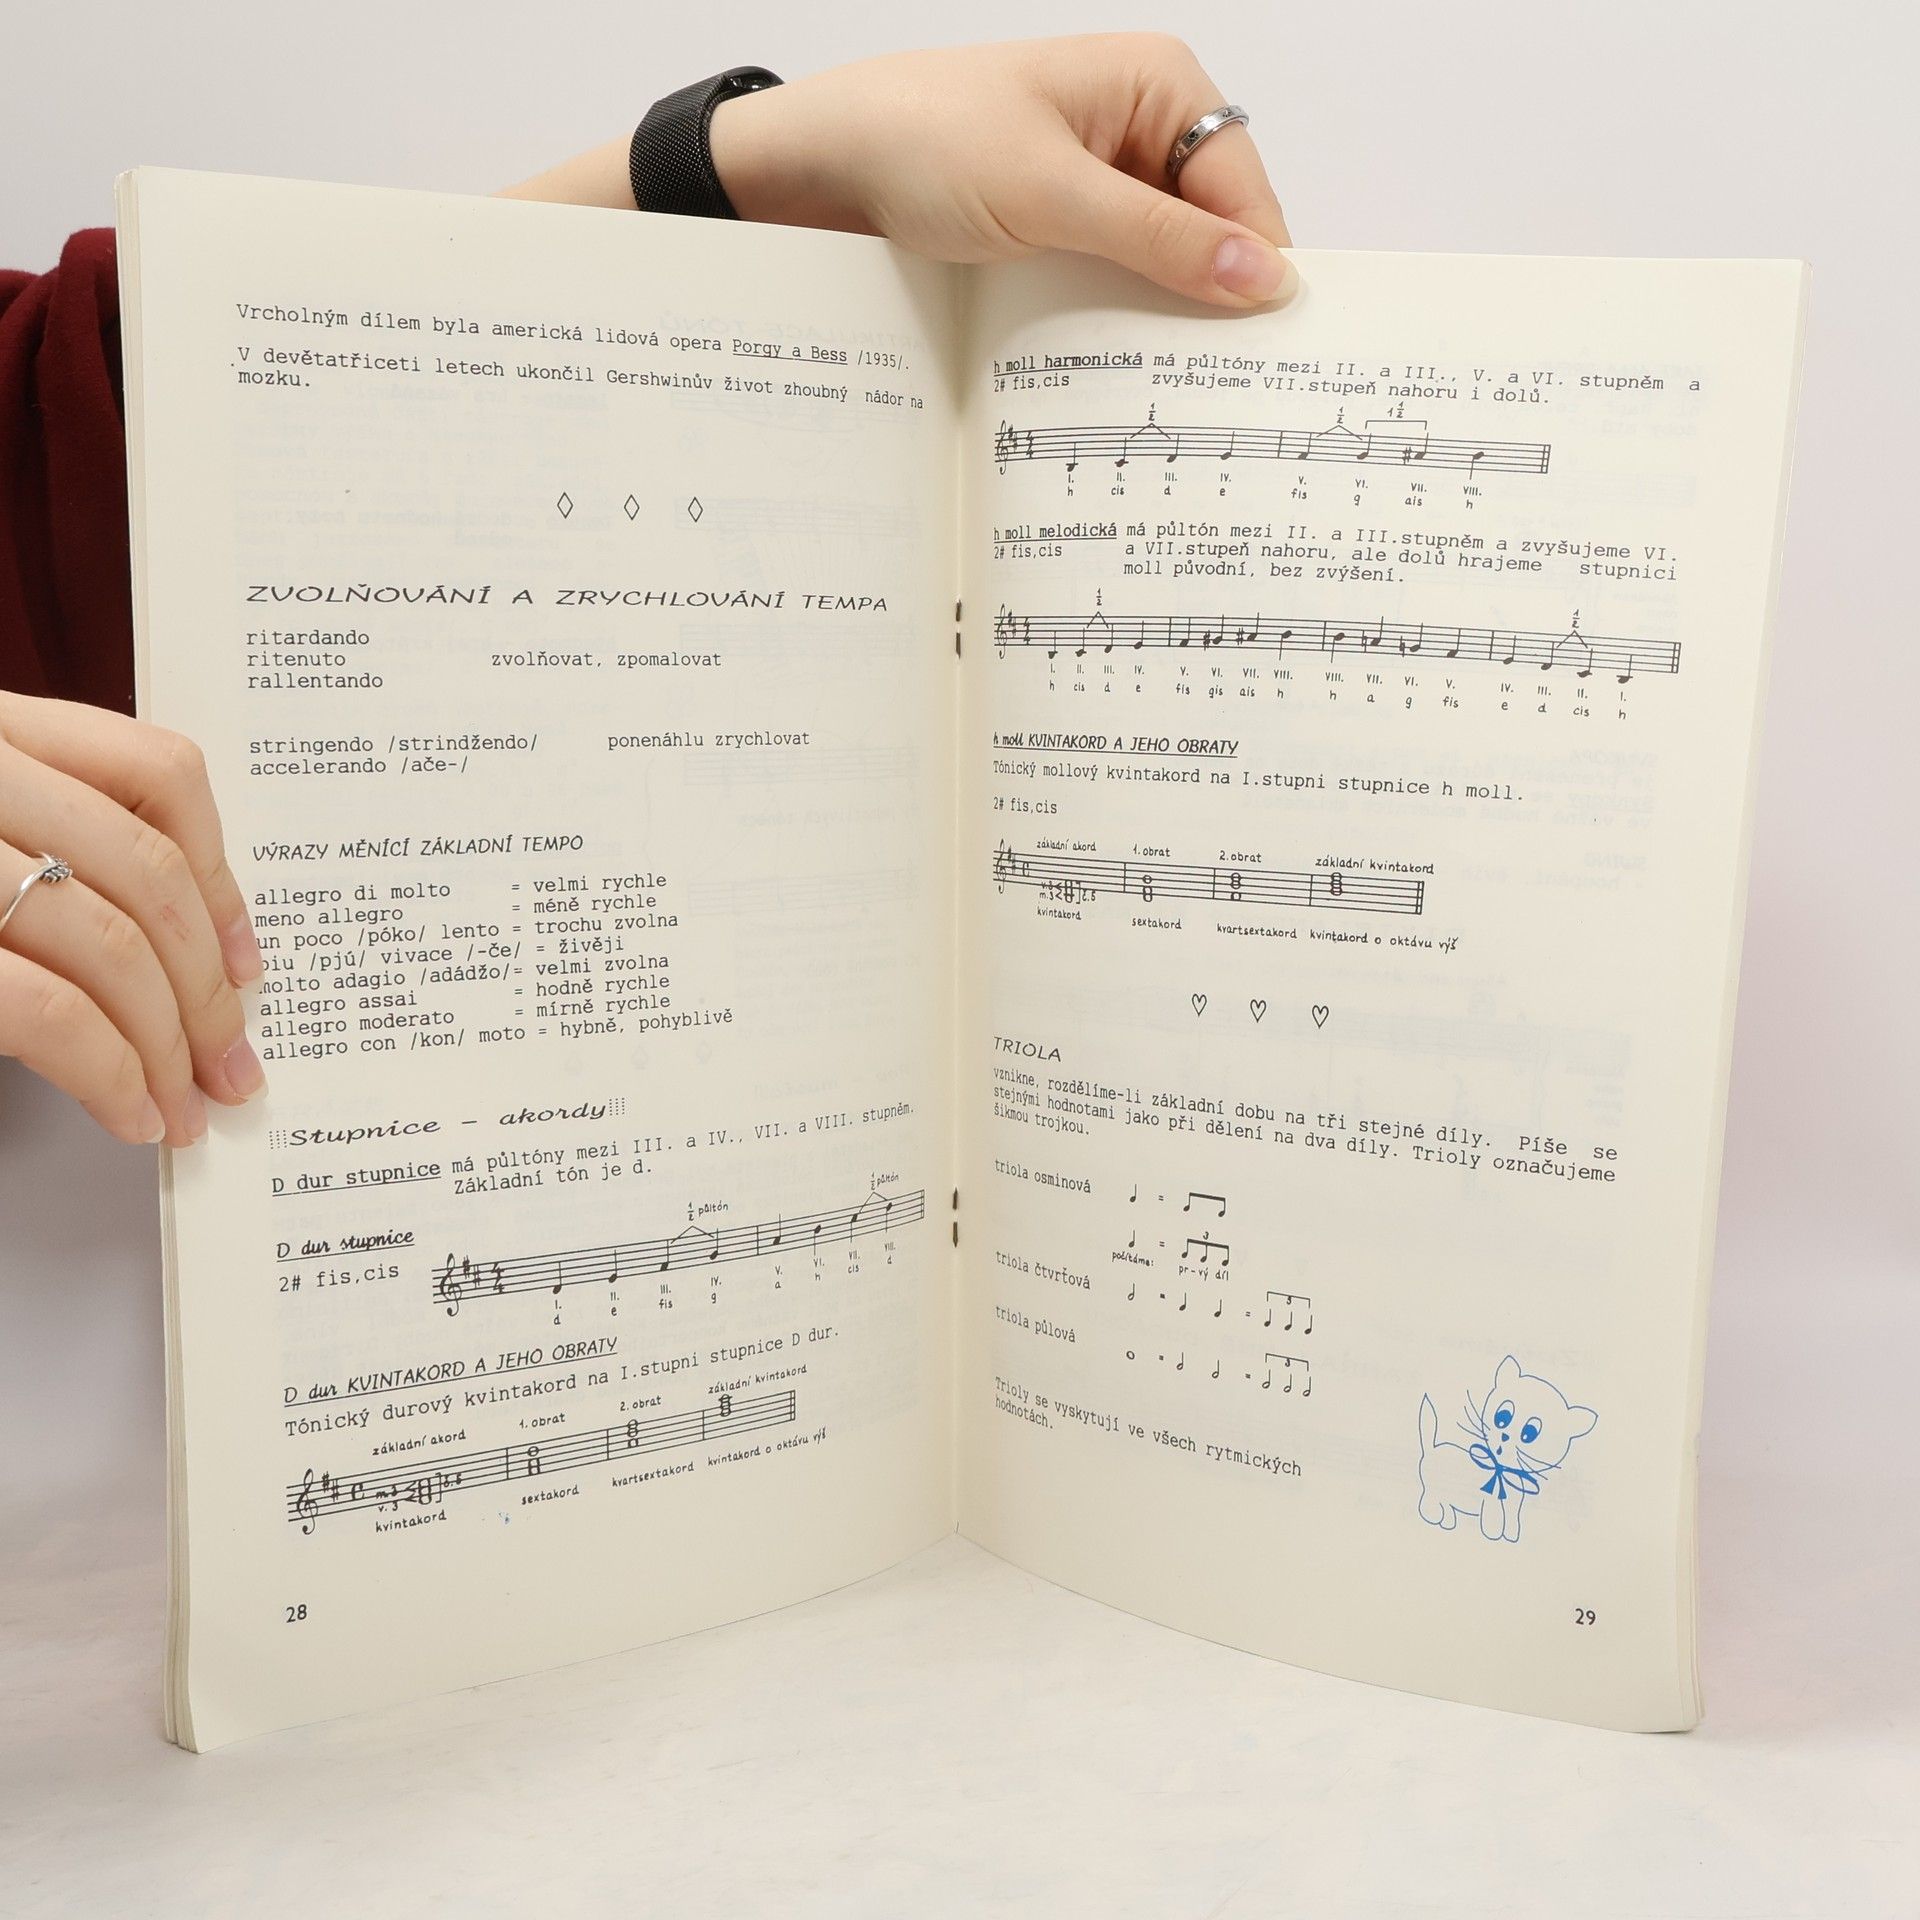 Vrcholným dílem byla americká lidová opera Porgy a Bess /1935/.
V devětatřiceti letech ukončil Gershwinův život zhoubný nádor na
mozku.
ZVOLŇOVÁNÍ A ZRYCHLOVÁNÍ TEMPA
ritardando
ritenuto zvolňovat, zpomalovat
rallentando
stringendo /strindžendo/ ponenáhlu zrychlovat
accelerando /ače-/
VÝRAZY MĚNÍCÍ ZÁKLADNÍ TEMPO
allegro di molto = velmi rychle
meno allegro = méně rychle
un poco /póko/ lento = trochu zvolna
piu /pjú/ vivace /-če/ = živěji
molto adagio /adádžo/= velmi zvolna
allegro assai = hodně rychle
allegro moderato = mírně rychle
allegro con /kon/ moto = hybně, pohyblivě
Stupnice - akordy
D dur stupnice má půltóny mezi III. a IV., VII. a VIII. stupněm.
Základní tón je d.
D dur stupnice
2# fis,cis
½ půltón ½ půltón
4/4
I. II. III. IV. V. VI. VII. VIII.
d e fis g a h cis d
D dur KVINTAKORD A JEHO OBRATY
Tónický durový kvintakord na I.stupni stupnice D dur.
základní akord 1. obrat 2. obrat základní kvintakord
m.3
v.3
č.5
kvintakord sextakord kvartsextakord kvintakord o oktávu výš
28
h moll harmonická má půltóny mezi II. a III., V. a VI. stupněm a
2# fis,cis zvyšujeme VII.stupeň nahoru i dolů.
½ ½ 1½
4/4
I. II. III. IV. V. VI. VII. VIII.
h cis d e fis g ais h
h moll melodická má půltón mezi II. a III.stupněm a zvyšujeme VI.
2# fis,cis a VII.stupeň nahoru, ale dolů hrajeme stupnici
moll původní, bez zvýšení.
½ ½
4/4
I. II. III. IV. V. VI. VII. VIII. VIII. VII. VI. V. IV. III. II. I.
h cis d e fis gis ais h h a g fis e d cis h
h moll KVINTAKORD A JEHO OBRATY
Tónický mollový kvintakord na I.stupni stupnice h moll.
2# fis,cis
základní akord 1. obrat 2. obrat základní kvintakord
v.3
m.3
č.5
kvintakord sextakord kvartsextakord kvintakord o oktávu výš
TRIOLA
vznikne, rozdělíme-li základní dobu na tři stejné díly. Píše se
stejnými hodnotami jako při dělení na dva díly. Trioly označujeme
šikmou trojkou.
triola osminová =
= 3
počítáme: pr-vý díl
triola čtvrťová = = 3
triola půlová = = 3
Trioly se vyskytují ve všech rytmických
hodnotách.
29